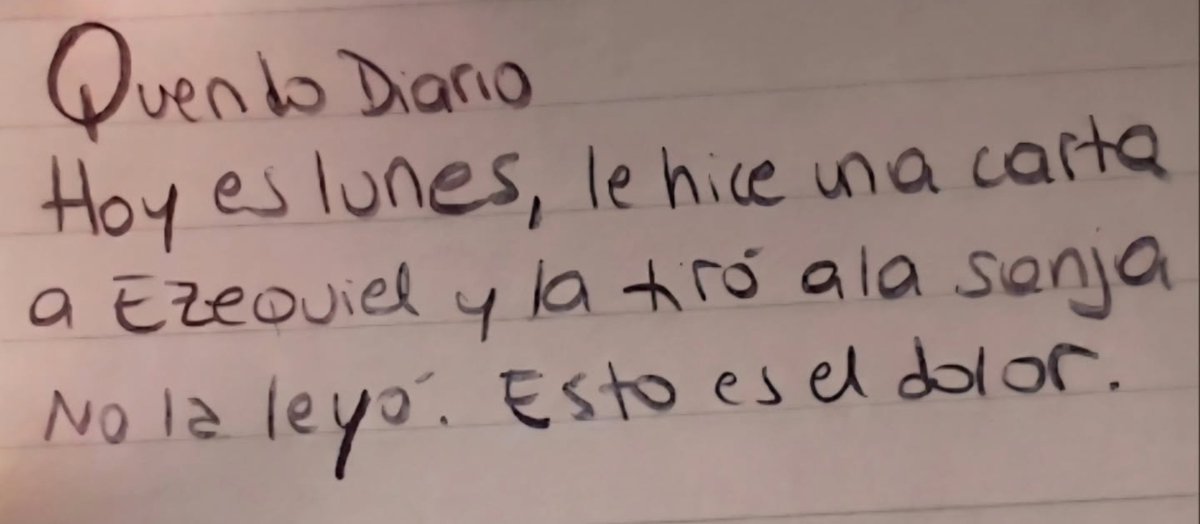 Querido Diario
Hoy es lunes, le hice una carta
a Ezequiel y la tiró a la sanja
No la leyó. Esto es el dolor.